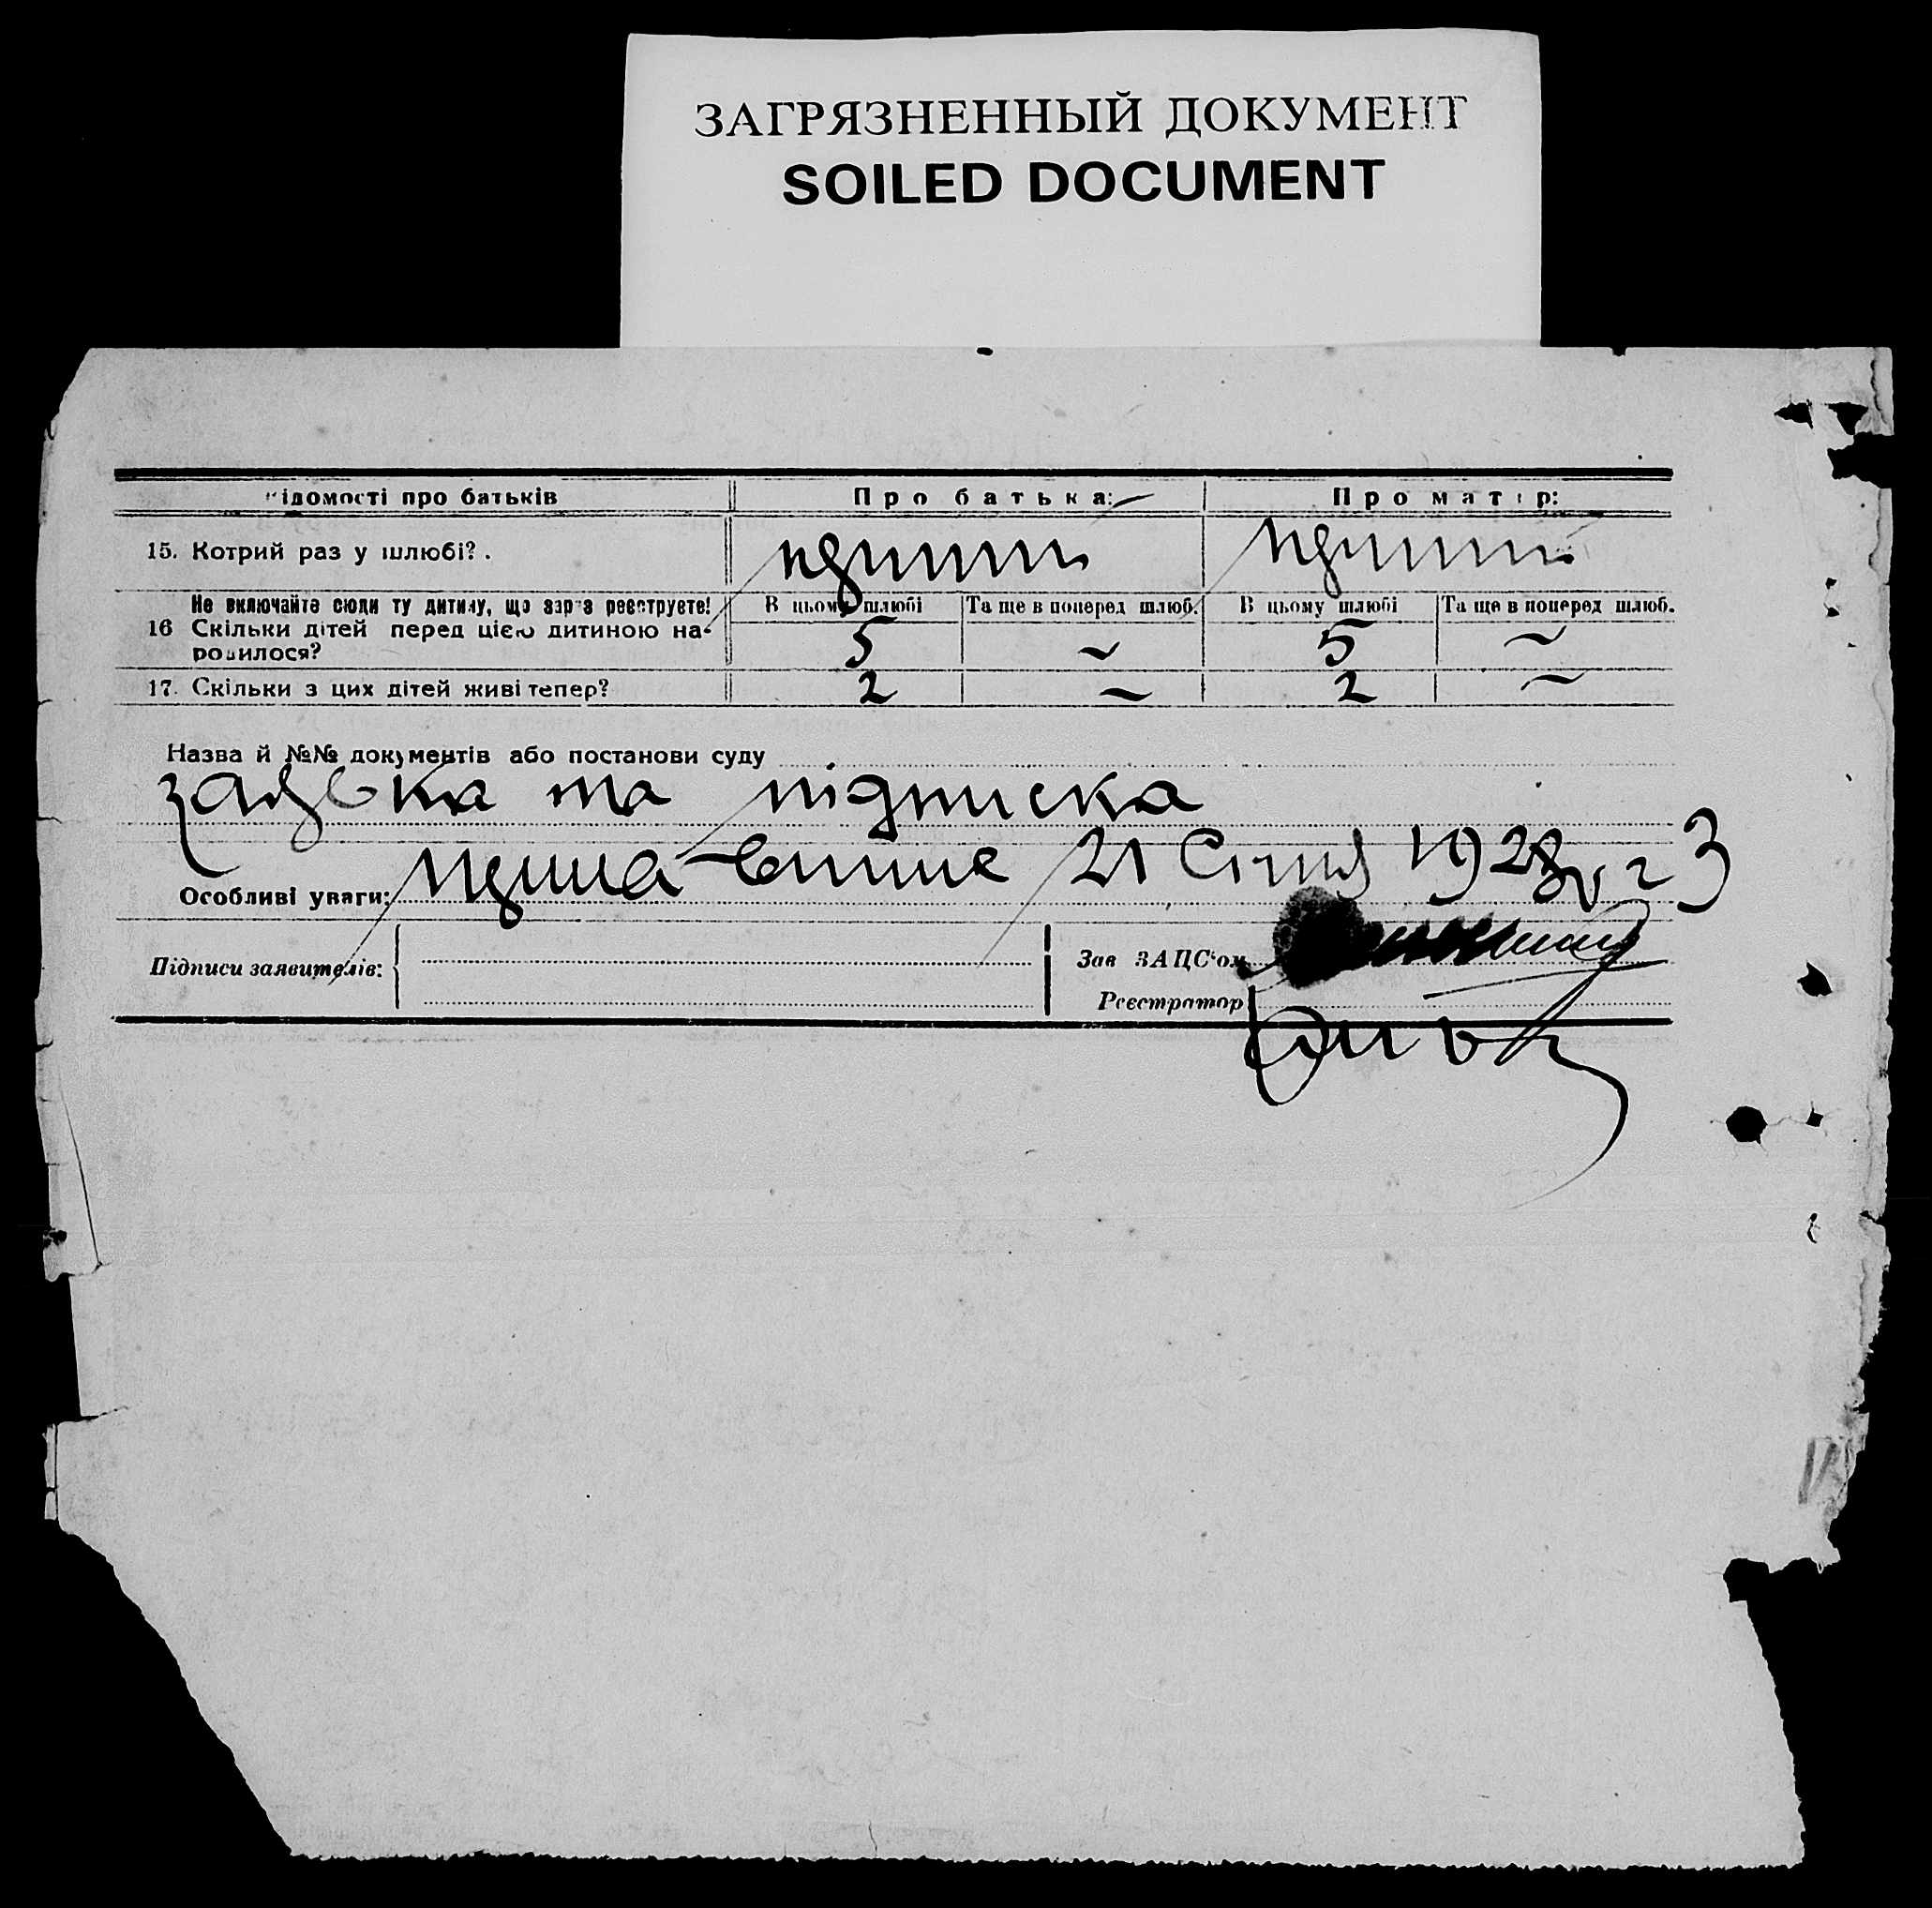 ЗАГРЯЗНЕННЫЙ ДОКУМЕНТ
SOILED DOCUMENT
ідомості про батьків Про батька: Про матір:
15. Котрий раз у шлюбі?.
Не включайте сюди ту дитину, що зараз реєструєте! В цьому шлюбі Та ще в поперед шлюб. В цьому шлюбі Та ще в поперед шлюб.
16 Скільки дітей перед цією дитиною на-
родилося? 5 ~ 5 ~
17. Скільки з цих дітей живі тепер? 2 ~ 2 ~
Назва й №№ документів або постанови суду
заявка та підписка
21 Січня 192
Особливі уваги:
Підписи заявителів: Зав ЗАЦС'ом
Реєстратор